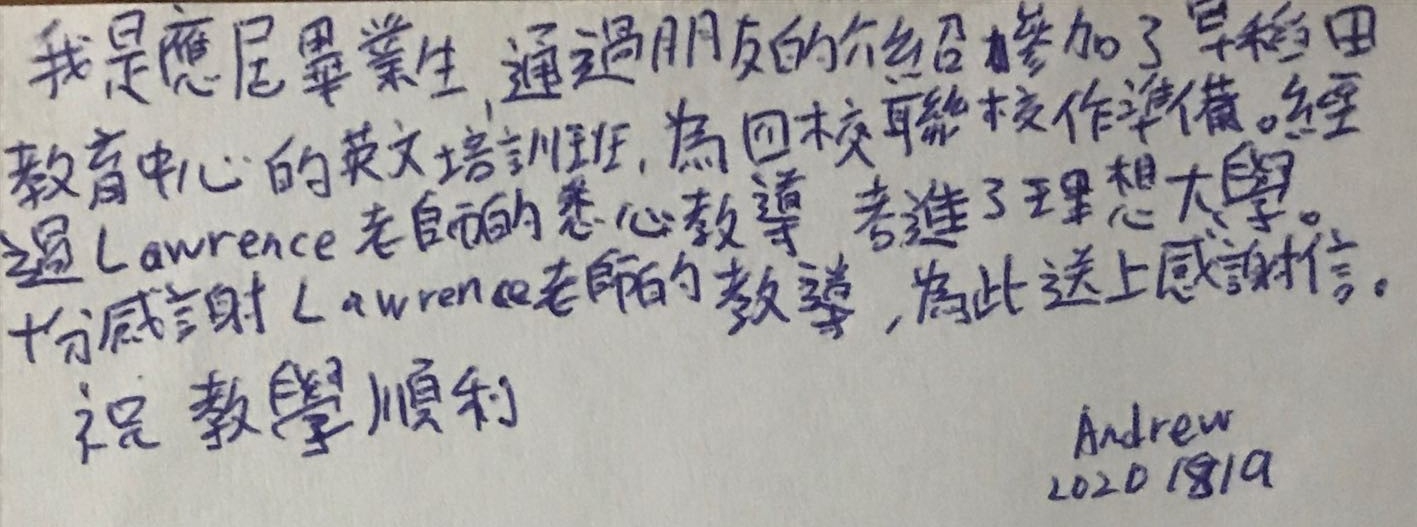 我是應屆畢業生,通過朋友的介紹參加了早稻田
教育中心的英文培訓班,為四校聯校作準備。經
過Lawrence老師的悉心教導 考進了理想大學。
十分感謝Lawrence老師的教導,為此送上感謝信。
祝 教學順利
Andrew
2020/8/9